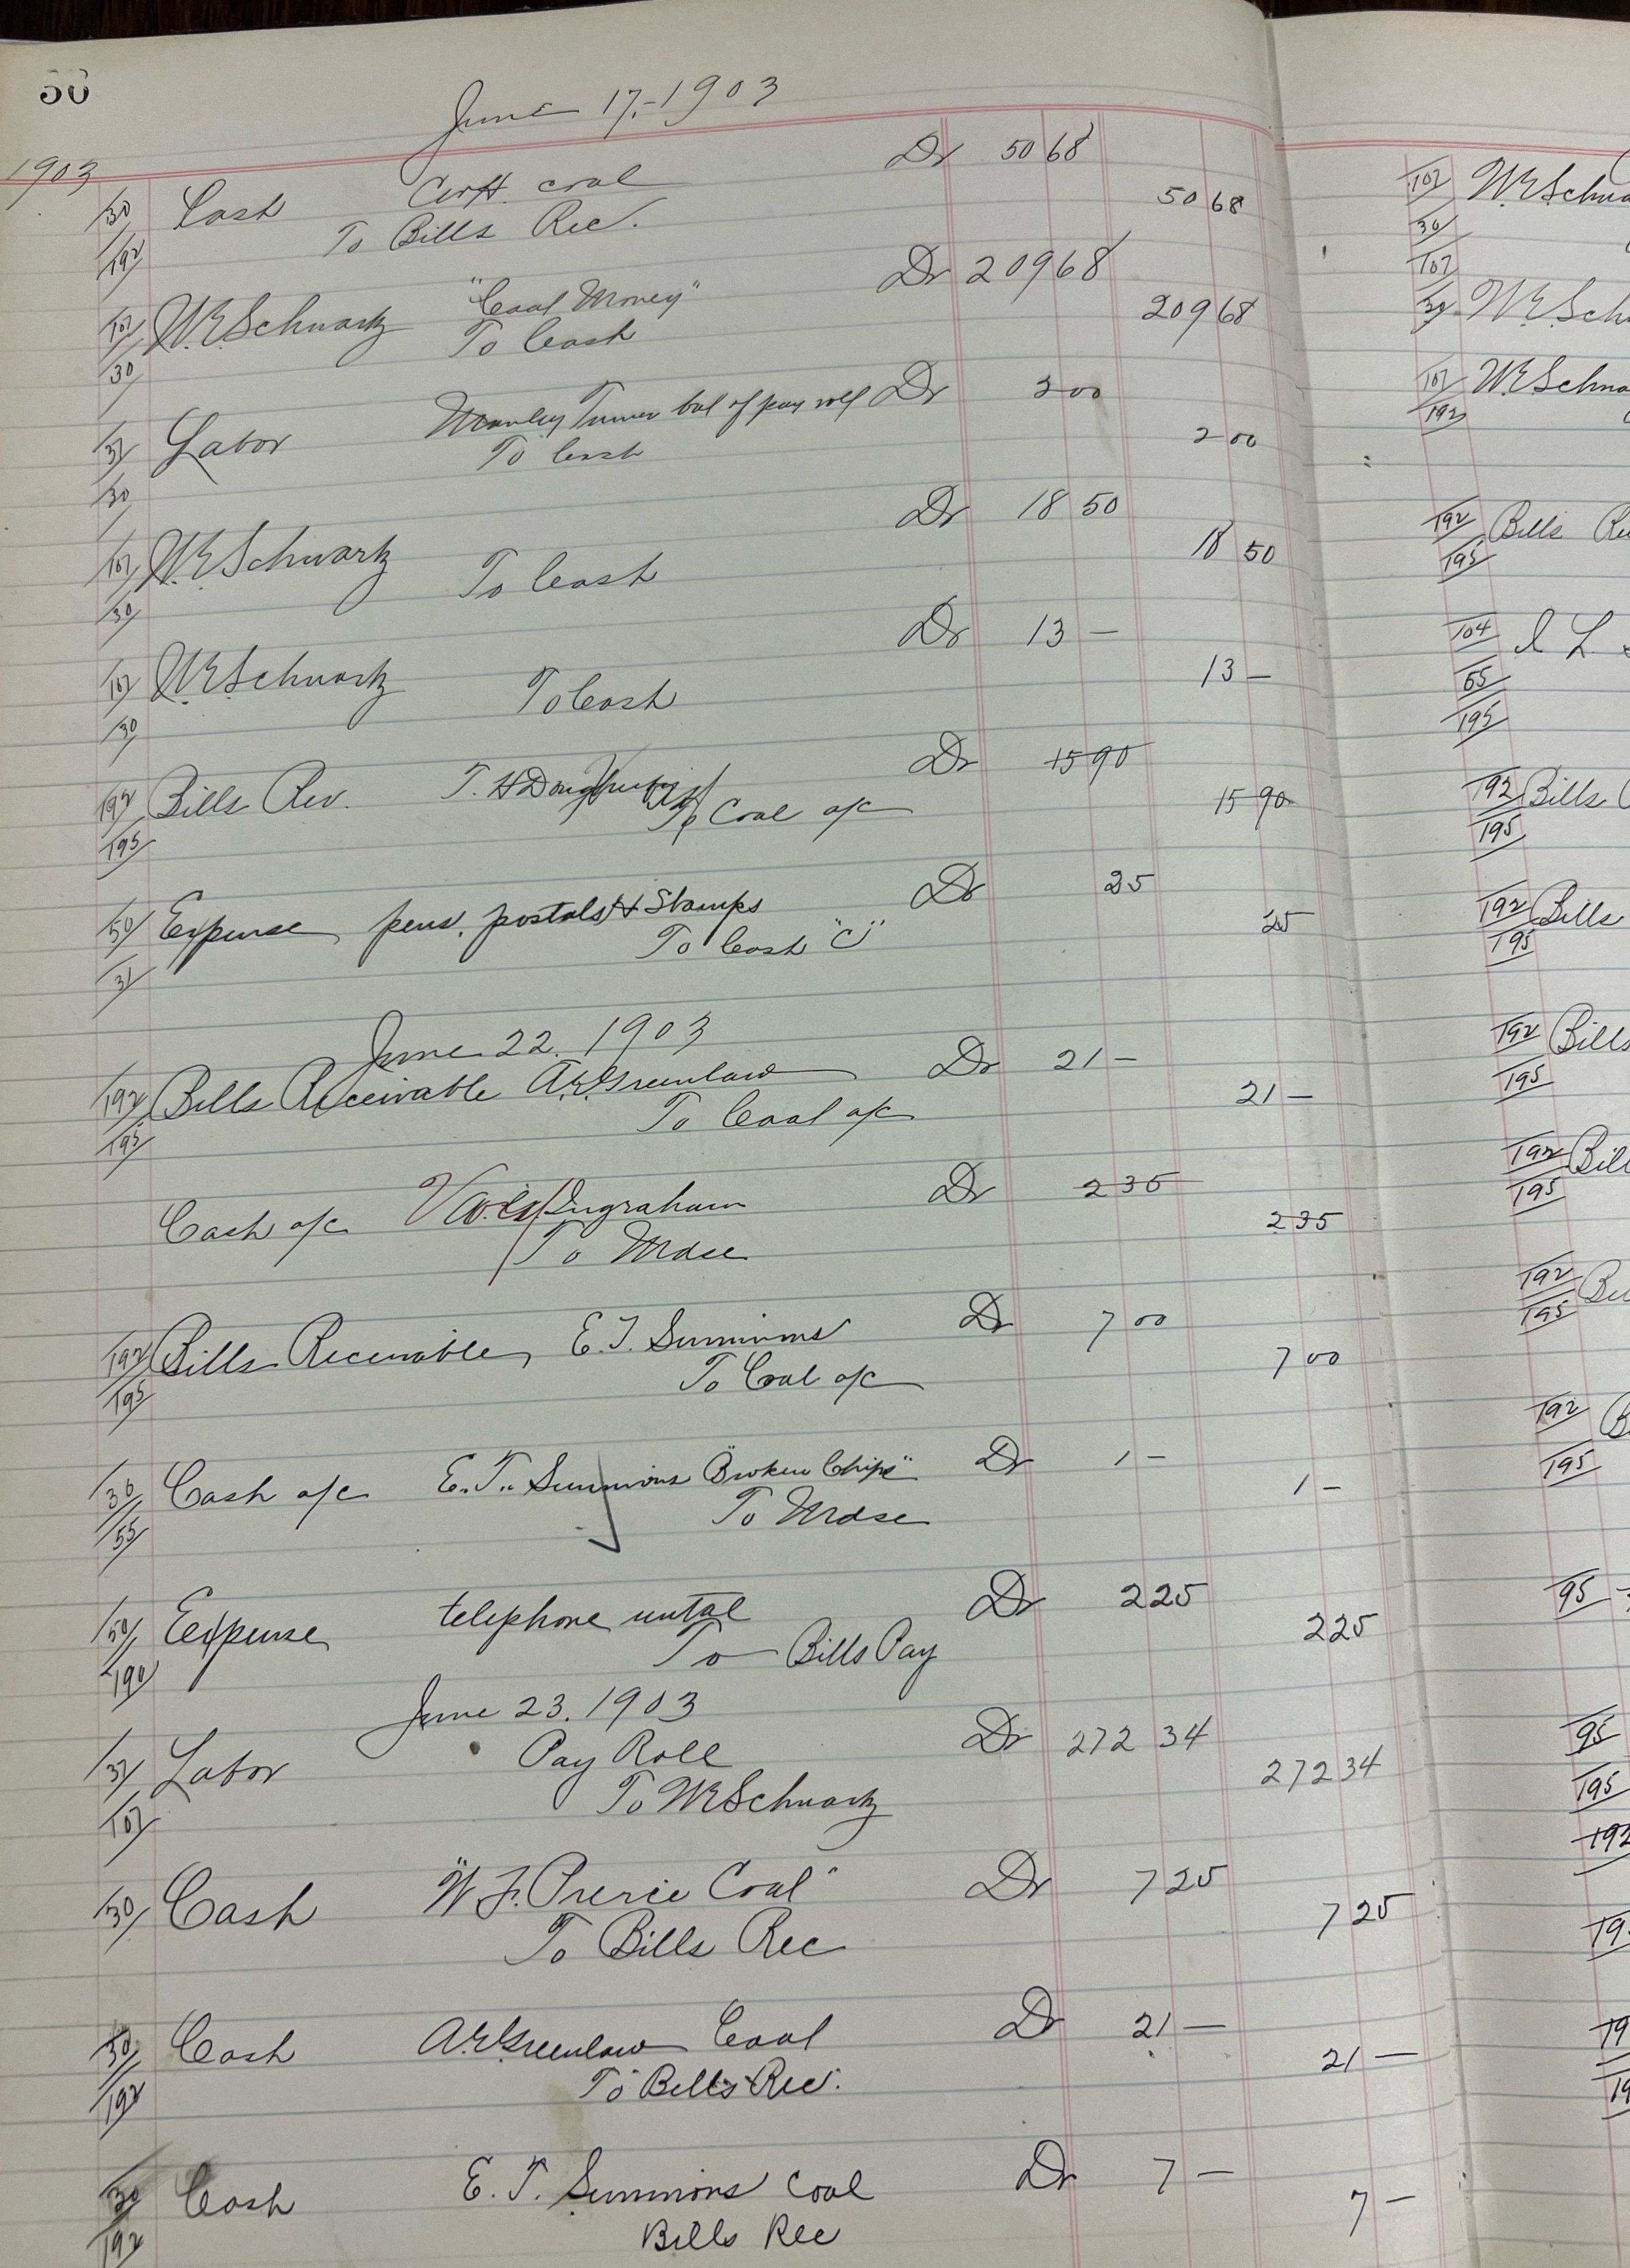 56
June 17,-1903
1903
Dr 50 68
30/ Cash Certf. coal 50 68
192/ To Bills Rec.
Dr 209 68
107/ W.E. Schwartz "Coal Money" 209 68
30/ To Cash
37/ Labor Manley Turner bal of pay roll Dr 2 00
30/ To Cash 2 00
Dr 18 50
107/ W.E. Schwartz 18 50
30/ To Cash
Dr 13 —
107/ W.E. Schwartz 13 —
30/ To Cash
192/ Bills Rec. T. H Dr 15 90
195/ To Coal a/c 15 90
50/ Expense, pens, postals & Stamps Dr 25
31/ To Cash "C" 25
June 22. 1903
192/ Bills Receivable A.E. Greenlaw Dr 21 —
195/ To Coal a/c 21 —
Cash a/c Void Ingraham Dr 2 35
To Mdse 2 35
192/ Bills Receivable, E. T. Summons Dr 7 00
195/ To Coal a/c 7 00
30/ Cash a/c E. T. Summons "Broken Chips" Dr 1 —
55/ To Mdse 1 —
50/ Expense telephone rental Dr 2 25
190/ To Bills Pay 2 25
June 23. 1903
37/ Labor Pay Roll Dr 272 34
107/ To W.E. Schwartz 272 34
30/ Cash "W. F. Coal" Dr 7 25
To Bills Rec 7 25
30/ Cash A.E. Greenlaw Coal Dr 21 —
192/ To Bills Rec. 21 —
30/ Cash E. T. Summons Coal Dr 7 —
192/ Bills Rec 7 —
107/ W.E. Schwa
30/
107/
30/ W.E. Sch
107/ W.E. Schwa
192/
192/ Bills Re
195/
104/ I L
55/
195/
192/ Bills
195/
192/ Bills
195/
192/ Bills
195/
192/ Bill
195/
192/ Bi
195/
192/ B
195/
95
95
195
192
19
19
19